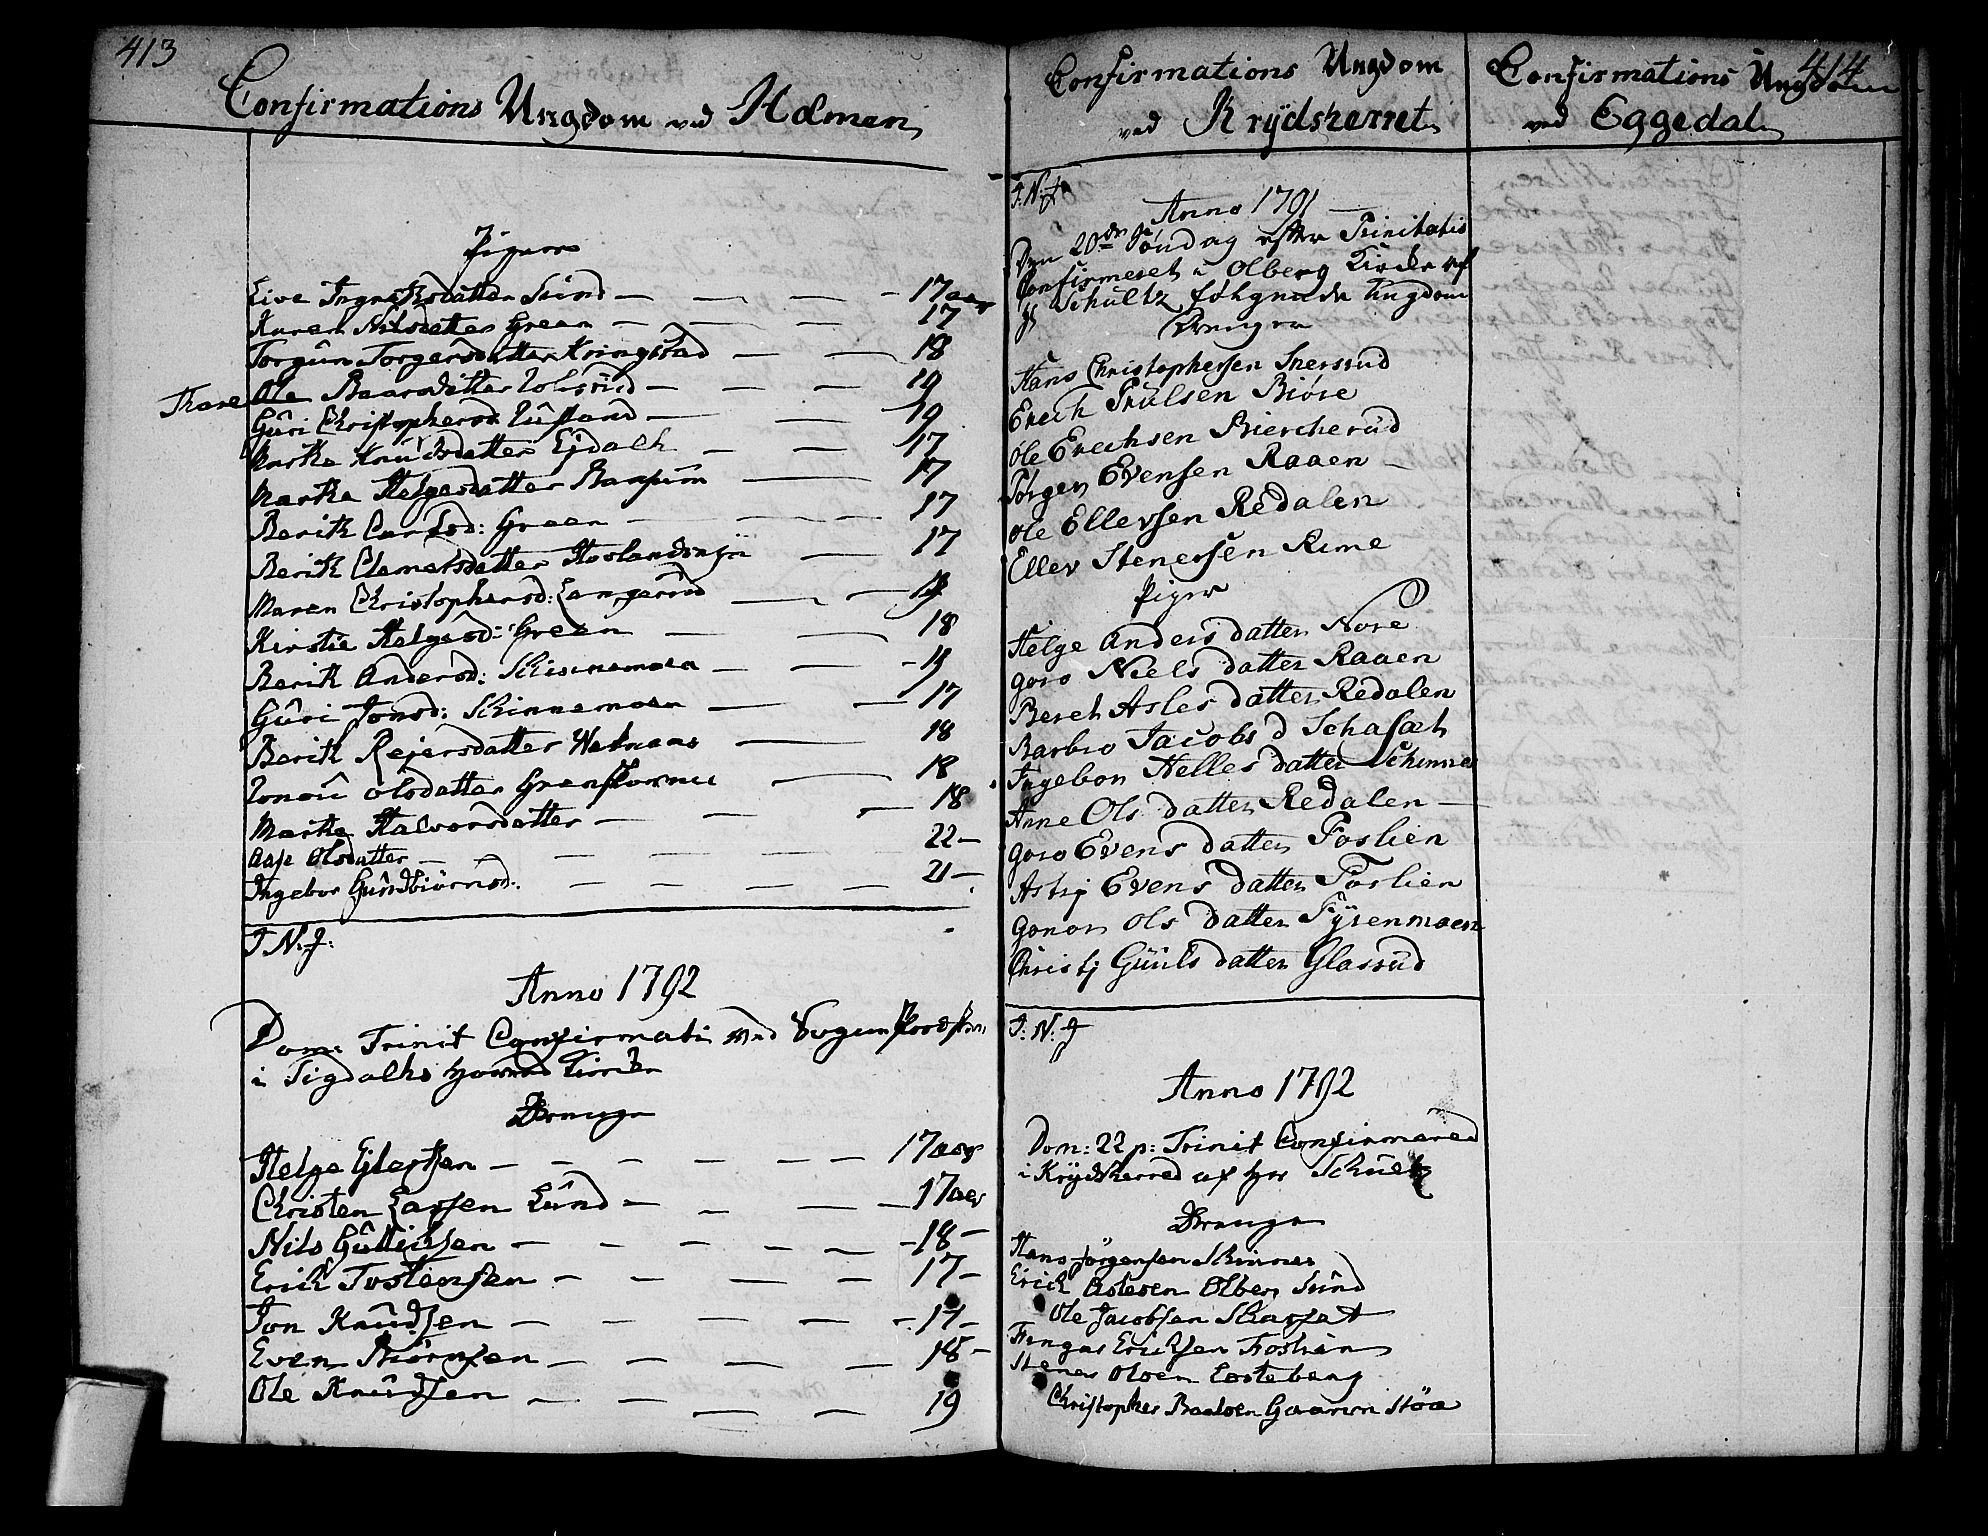 413
Confirmations Ungdom ved Holmen
Piger
Live Ingretsdatter Sund 17 aar
Karen Nilsdatter Green 17
Torgun Torgersdatter Kringstad 18
Thore Ole Baarsdatter 19
Guri Christophersd: 19
Marthe Knudsdatter Eidahl 17
Marthe Helgesdatter 17
Berith Carlsd: Green 17
Berith Clemetsdatter 17
Maren Christophersd:
Kirstie Helgesd: Green 18
Berith Andersd: Skinnemoen
Guri Jonsd: Skinnemoen 17
Berith Rejersdatter 18
olsdatter 18
Marthe Halvorsdatter 18
Aase Olsdatter 22
Ingebor Gundbiørnsd: 21
I. N. J:
Anno 1792
Dom: Trinit Confirmati ved
i Sigdahls hoved Kircke
Drenge
Helge 17 aar
Christen Larsen Lund 17 aar
Nils Guttulsen 18
Erick Tostensen 17
Jon Knudsen 17
Even Biörnsen 18
Ole Knudsen 19
Confirmations Ungdom
ved Krydsherret
I. N. J.
Anno 1791
Den 20de Søndag efter Trinitatis
Confirmeret i Olberg Kircke af
Hr Schultz følgende Ungdom
Drenger
Hans Christophersen Snersrud
Erich Trulsen Biøre
Ole Erechsen Biercherud
Törgen Evensen Raaen
Ole Ellevsen Redalen
Ellev Stenersen Rime
Piger
Helge Anders datter Nore
Goro Niels datter Raaen
Beret Asles datter Redalen
Barbro Jacobs d Schafæt
Ingebor Helles datter Schinnes
Anne Ols datter Redalen
Goro Evens datter Foslien
Astrj Evens datter Foslien
Gonor Ols datter Fyrenmoen
Christj Guuls datter Glasrud
I. N. J
Anno 1792
Dom: 22 p: Trinit Confirmered
i Krydsherred af Hr Schultz
Drenge
Hans Jørgensen Skinnes
Erick Aslesen Olber Sund
Ole Jacobsen Skafæt
Fingar Ericksen Foslien
Stener Olsen Losteberg
Christopher Gaaren Stöa
414
Confirmations Ungdom
ved Eggedal